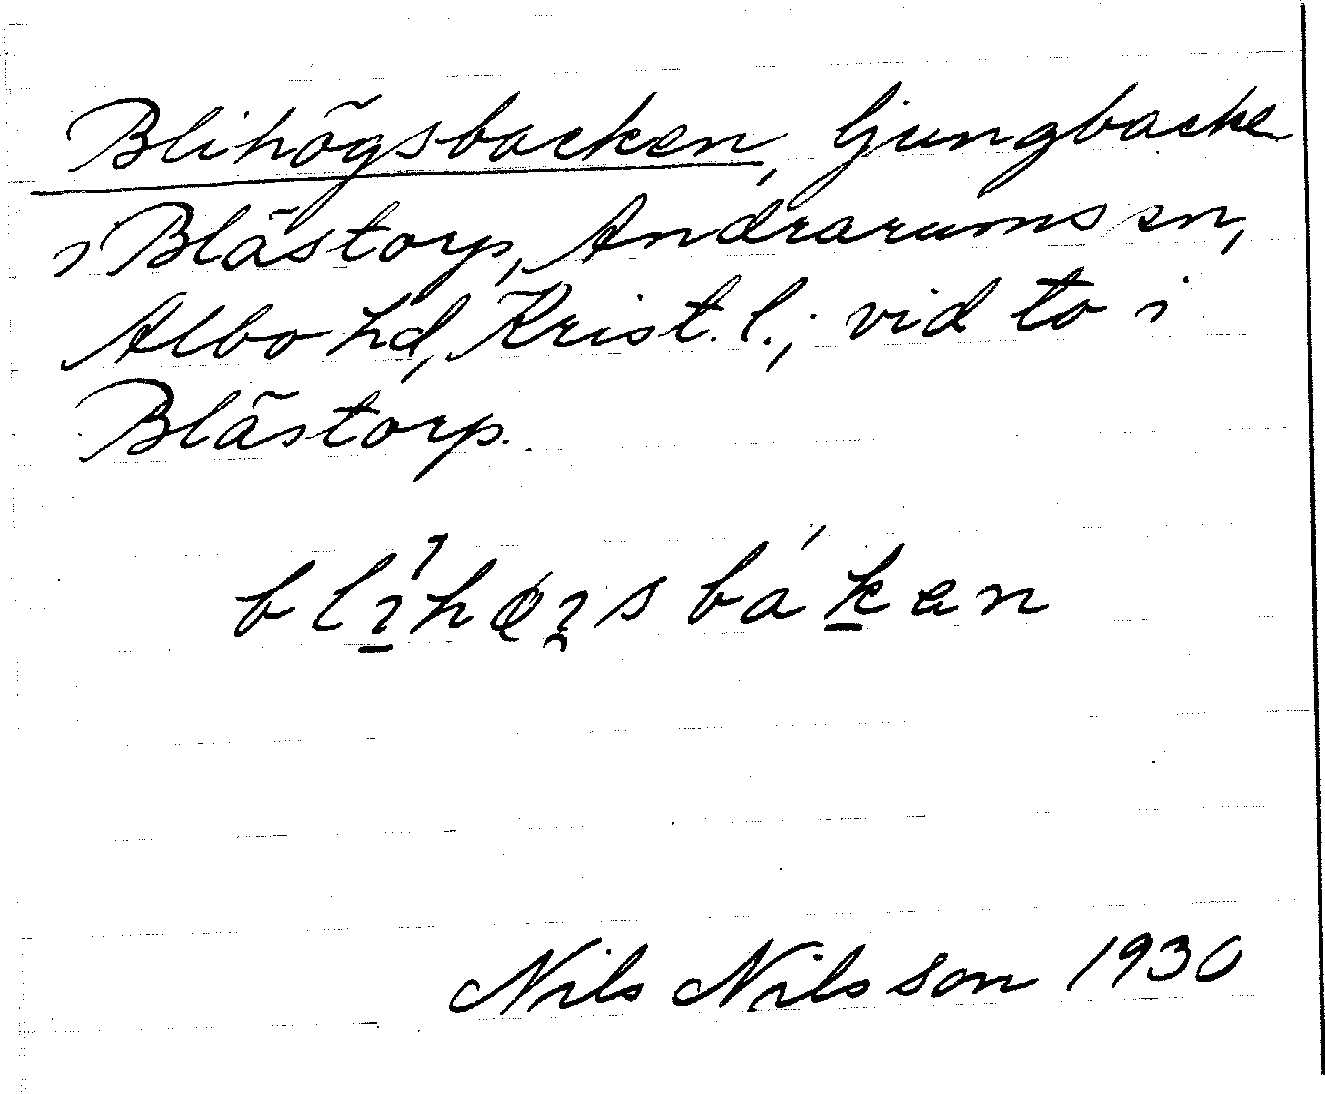 Blihögsbacken, ljungbacke
i Blästorp, Andrarums sn,
Albo hd, Krist. l.; vid to i
Blästorp.
blɪ̱́høi̯s bák̲en
Nils Nilsson 1930